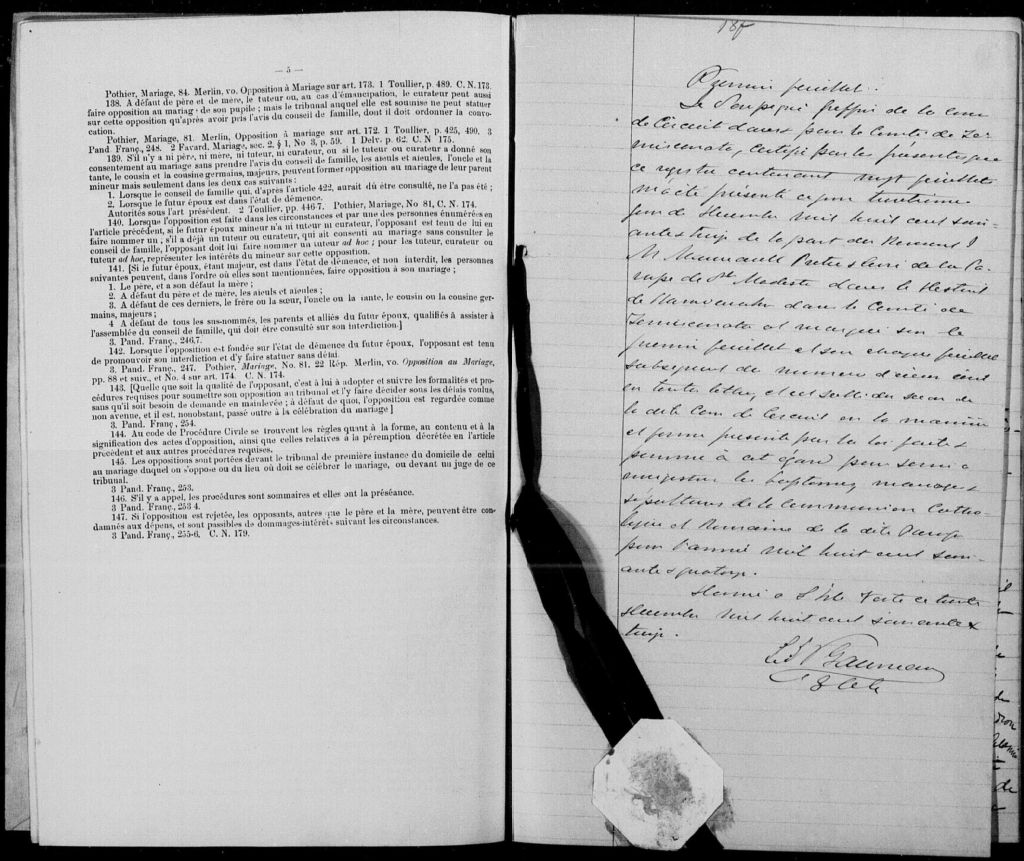 — 5 —
Pothier, Mariage, 84. Merlin, vo. Opposition à Mariage sur art. 173. 1 Toullier, p. 489. C. N. 173.
138. A défaut de père et de mère, le tuteur ou, au cas d'émancipation, le curateur peut aussi
faire opposition au mariag· de son pupile ; mais le tribunal auquel elle est soumise ne peut statuer
sur cette opposition qu'après avoir pris l'avis du conseil de famille, dont il doit ordonner la convo-
cation.
Pothier, Mariage, 81. Merlin, Opposition à mariage sur art. 172. 1 Toullier, p. 425, 490. 3
Pand. Franç., 248. 2 Favard, Mariage, sec. 2, § 1, No 3, p. 59. 1 Delv. p. 62. C. N. 175.
139. S'il n'y a ni père, ni mère, ni tuteur, ni curateur, ou si le tuteur ou curateur a donné son
consentement au mariage sans prendre l'avis du conseil de famille, les aïeuls et aïeules, l'oncle et la
tante, le cousin et la cousine germains, majeurs, peuvent former opposition au mariage de leur parent
mineur mais seulement dans les deux cas suivants :
1. Lorsque le conseil de famille qui, d'après l'article 422, aurait dû être consulté, ne l'a pas été ;
2. Lorsque le futur époux est dans l'état de démence.
Autorités sous l'art précédent. 2 Toullier, pp. 446-7. Pothier, Mariage, No 81, C. N. 174.
140. Lorsque l'opposition est faite dans les circonstances et par une des personnes énumérées en
l'article précédent, si le futur époux mineur n'a ni tuteur ni curateur, l'opposant est tenu de lui en
faire nommer un ; s'il a déjà un tuteur ou curateur, qui ait consenti au mariage sans consulter le
conseil de famille, l'opposant doit lui faire nommer un tuteur ad hoc ; pour les tuteur, curateur ou
tuteur ad hoc, représenter les intérêts du mineur sur cette opposition.
141. [Si le futur époux, étant majeur, est dans l'état de démence, et non interdit, les personnes
suivantes peuvent, dans l'ordre où elles sont mentionnées, faire opposition à son mariage ;
1. Le père, et a son défaut la mère ;
2. A défaut du père et de mère, les aïeuls et aïeules ;
3. A défaut de ces derniers, le frère ou la sœur, l'oncle ou la tante, le cousin ou la cousine ger-
mains, majeurs ;
4 A défaut de tous les sus-nommés, les parents et alliés du futur époux, qualifiés à assister à
l'assemblée du conseil de famille, qui doit être consulté sur son interdiction.]
3. Pand. Franç., 246,7.
142. Lorsque l'opposition est fondée sur l'état de démence du futur époux, l'opposant est tenu
de promouvoir son interdiction et d'y faire statuer sans délai.
3. Pand. Franç., 247. Pothier, Mariage, No. 81. 22 Rép. Merlin, vo. Opposition au Mariage,
pp. 88 et suiv., et No. 4 sur art. 174. C. N. 174.
143. [Quelle que soit la qualité de l'opposant, c'est à lui à adopter et suivre les formalités et pro-
cédures requises pour soumettre son opposition au tribunal et l'y faire décider sous les délais voulus,
sans qu'il soit besoin de demande en mainlevée ; à défaut de quoi, l'opposition est regardée comme
non avenue, et il est, nonobstant, passé outre à la célébration du mariage]
3. Pand. Franç., 254.
144. Au code de Procédure Civile se trouvent les règles quant à la forme, au contenu et à la
signification des actes d'opposition, ainsi que celles relatives à la péremption décrétée en l'article
précédent et aux autres procédures requises.
145. Les oppositions sont portées devant le tribunal de première instance du domicile de celui
au mariage duquel on s'oppose ou du lieu où doit se célébrer le mariage, ou devant un juge de ce
tribunal.
3 Pand. Franç., 253.
146. S'il y a appel, les procédures sont sommaires et elles ont la préséance.
3 Pand. Franç., 253 4.
147. Si l'opposition est rejetée, les opposants, autres que le père et la mère, peuvent être con-
damnés aux dépens, et sont passibles de dommages-intérêts suivant les circonstances.
3 Pand. Franç., 255-6. C. N. 179.
Premier feuillet.
Le Soussigné greffier de la cour
de Circuit dans et pour le Comté de Té-
miscouata, certifie par les présentes que
ce registre contenant vingt feuillets
m'a été présenté ce jour trentième
jour de Décembre mil huit cent soix-
ante et treize de la part du Révérend
M. Prêtre & Curé de la Pa-
roisse de St Modeste dans le District
de Kamouraska dans le Comté de
Témiscouata et marqué sur le
premier feuillet et sur chaque feuillet
subséquent du numéro d'icelui écrit
en toute lettre, et est scellé du sceau de
la dite Cour de Circuit en la manière
et forme prescrite par la loi faite &
pourvue à cet égard pour servir à
enregistrer les baptêmes, mariages &
sépultures de la Communion Catho-
lique et Romaine de la dite Paroisse
pour l'année mil huit cent soix-
ante & quatorze.
Donné à L'Isle Verte ce trente
Décembre mil huit cent soixante &
treize.
Gauvreau